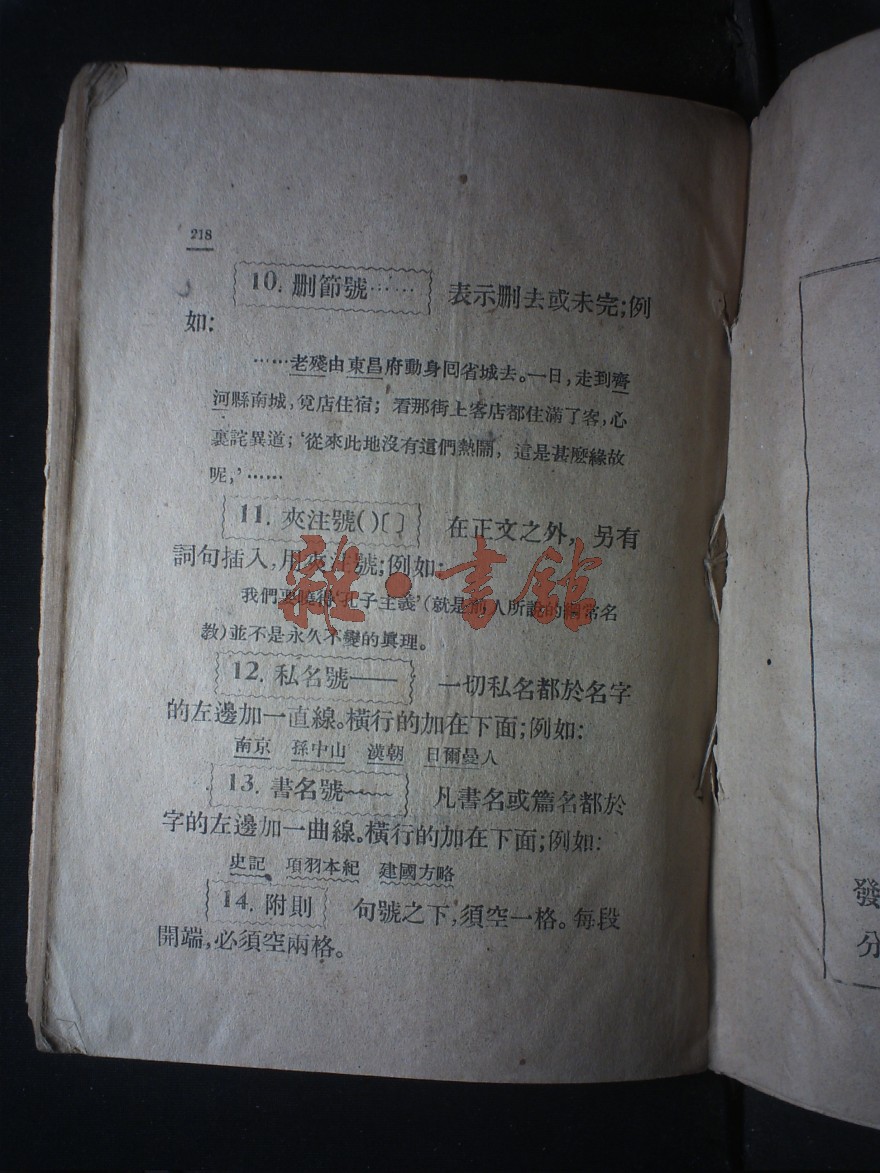 218
10. 删節號…… 表示删去或未完;例
如:
……老殘由東昌府動身囘省城去。一日,走到齊
河縣南城,覓店住宿; 看那街上客店都住滿了客,心
裏詫異道;‘從來此地沒有這們熱鬧, 這是甚麼緣故
呢,’……
11. 夾注號( )〔 〕 在正文之外, 另有
詞句插入,用夾注號;例如:
我們要曉得‘孔子主義’(就是前人所說的綱常名
教)並不是永久不變的眞理。
12. 私名號—— 一切私名都於名字
的左邊加一直線。橫行的加在下面;例如:
南京 孫中山 漢朝 日爾曼人
13. 書名號﹏﹏ 凡書名或篇名都於
字的左邊加一曲線。橫行的加在下面;例如:
史記 項羽本紀 建國方略
14. 附則 句號之下,須空一格。每段
開端,必須空兩格。
雜·書館
發
分